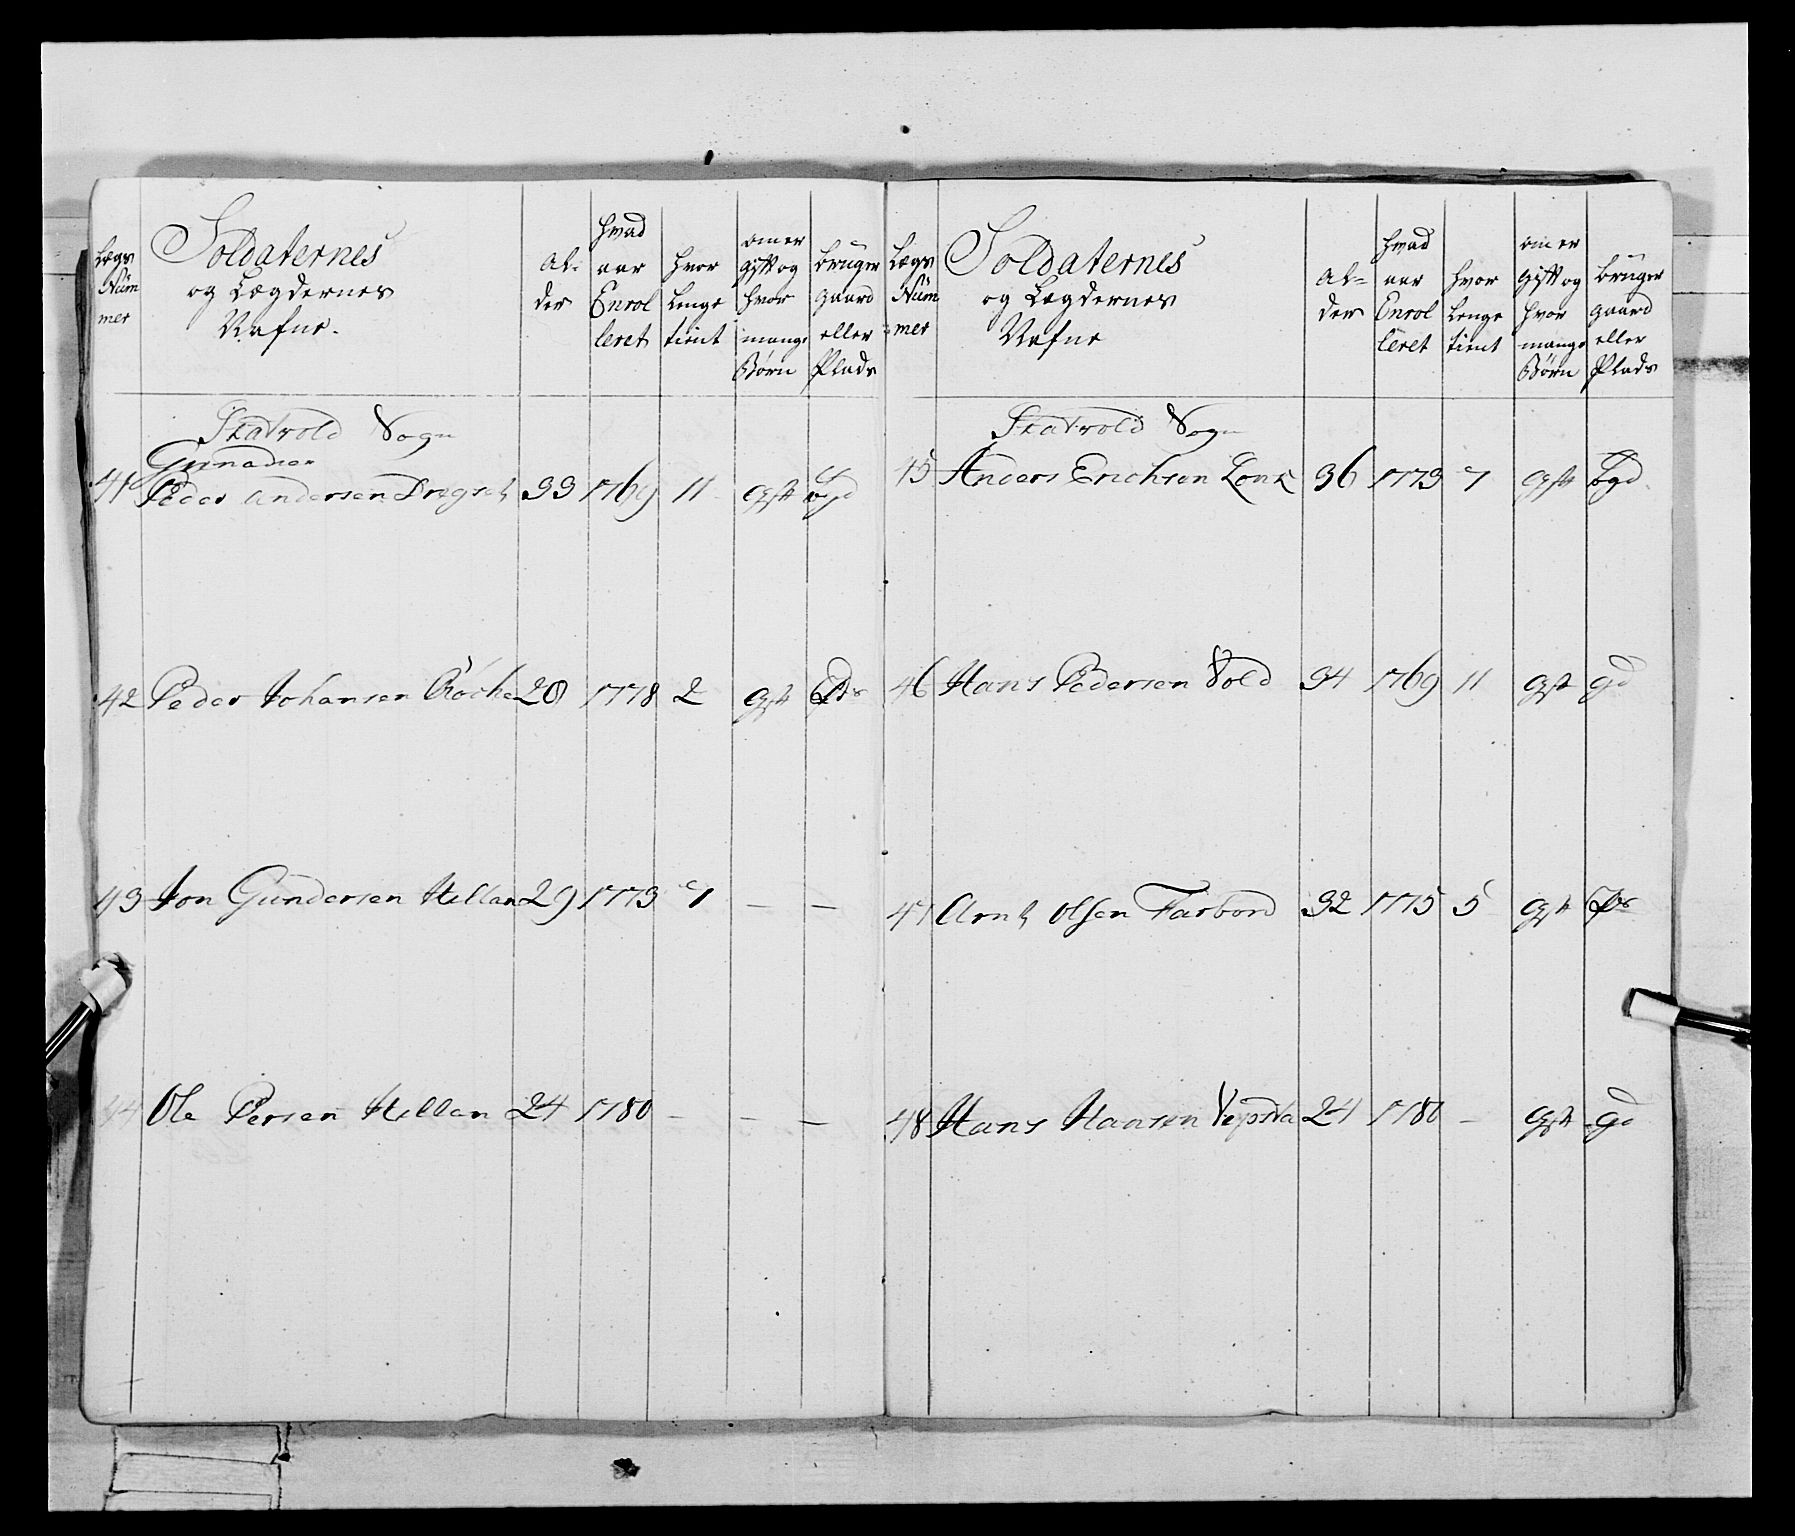 Lægs Num mer | Soldaternes og Lægdernes Nafne. | Al- der | hvad aar Enrol leret | hvor lenge tient | om er gift og hvor mange Børn | bruger gaard eller Plads
Skatvold Sogn
Grenadier
41 Peder Andersen 33 1769 11 gift bgd
42 Peder Johansen Røche 20 1778 2 gift Pds
43 Jon Gundersen Hellan 29 1773 7 — —
44 Ole Persen Hellan 24 1780 — — —
Lægs Num mer | Soldaternes og Lægdernes Nafne | Al- der | hvad aar Enrol leret | hvor lenge tient | om er gift og hvor mange Børn | bruger gaard eller Plads
Skatvold Sogn
45 Anders Erichsen 36 1773 7 gift bgd
46 Hans Pedersen Vold 34 1769 11 gift gd
47 Arnt Olsen Farbord 32 1775 5 gift Pds
48 Hans Hansen 24 1780 — gift gd